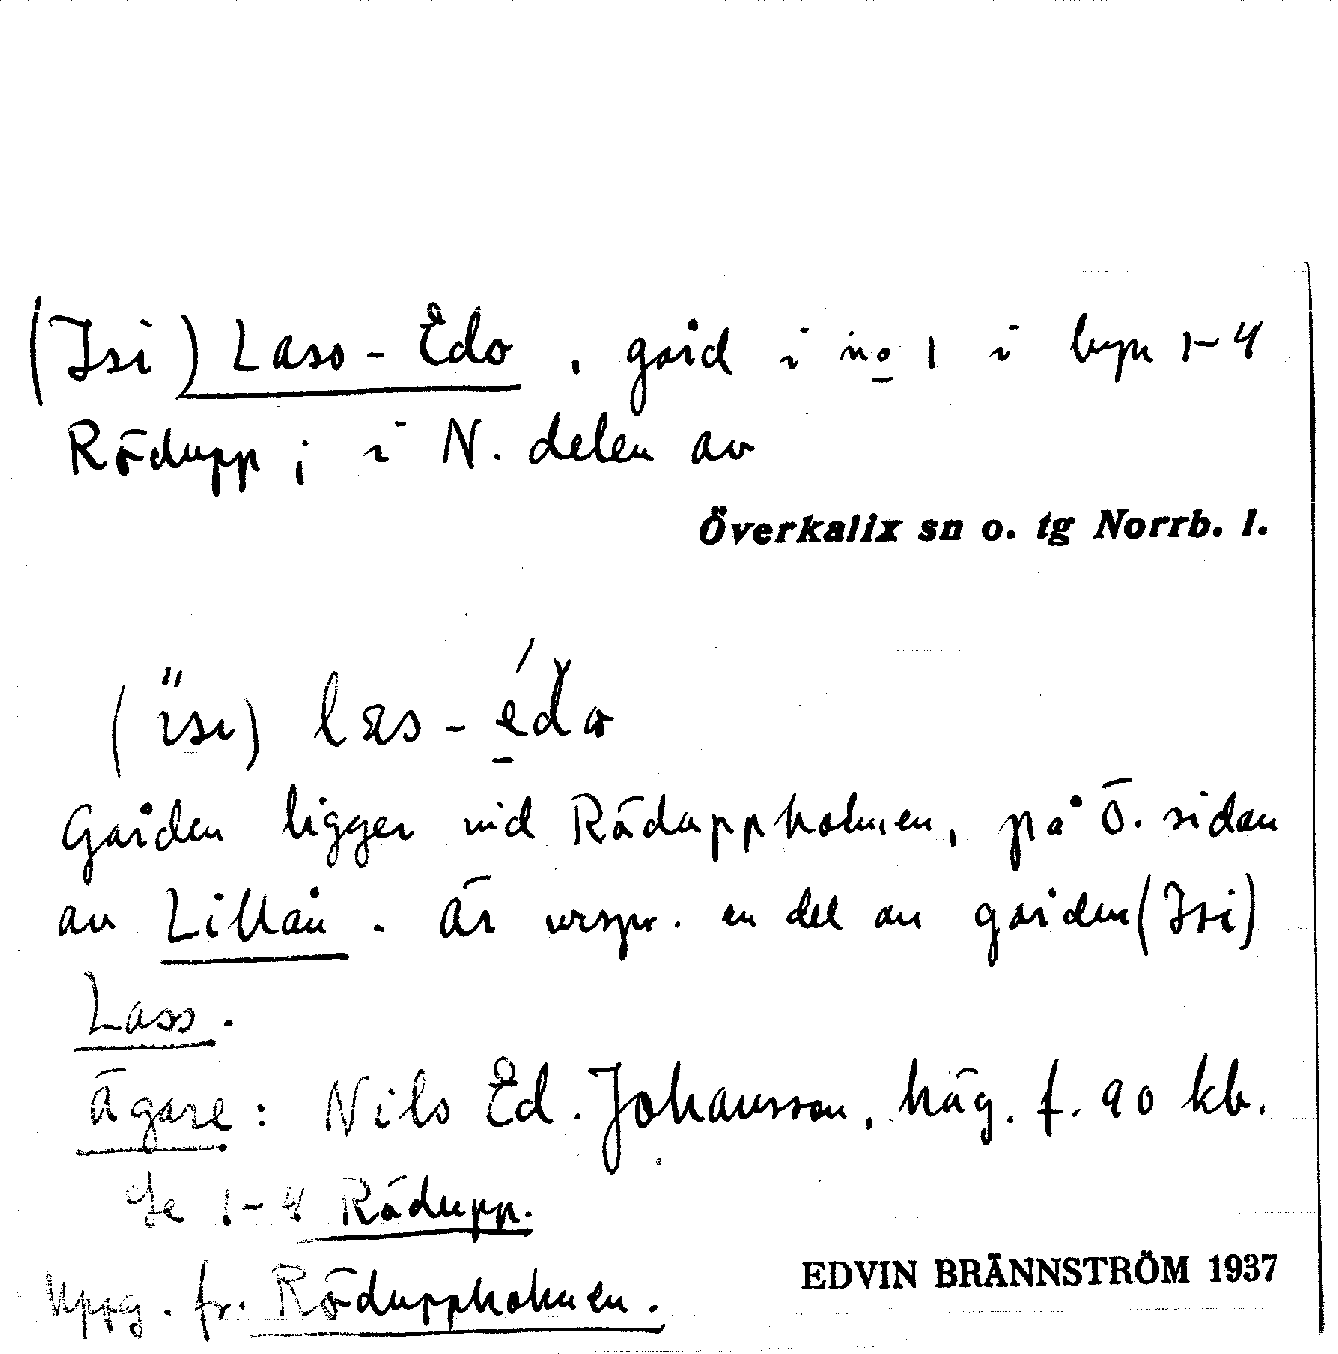 (Isi) Lass-Edo, gård i no 1 i byn 1-4
Rödupp; i N. delen av
Överkalix sn o. tg Norrb. l.
(ïsi) læs-édo
Gården ligger vid Röduppholmen, på Ö. sidan
av Lillån. Är urspr. en del av gården (Isi)
Lass.
Ägare: Nils Ed. Johansson, häg. f. 90 kb.
Se 1-4 Rödupp.
Uppg. fr. Röduppholmen.
EDVIN BRÄNNSTRÖM 1937